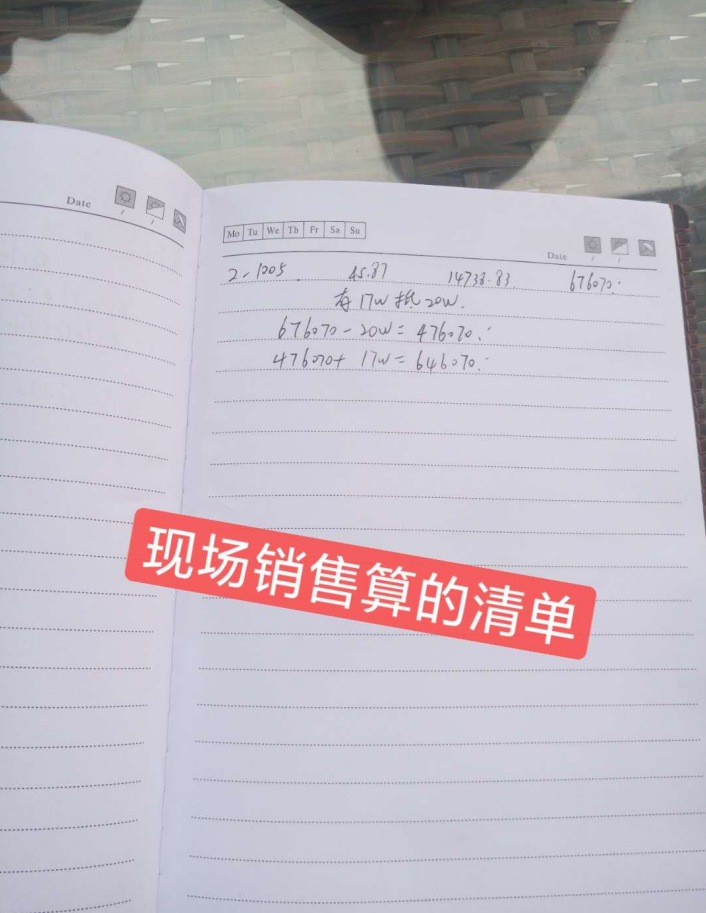 Date
Mo Tu We Th Fr Sa Su
Date
2-1205 45.87 14738.83 676070.
存17W抵20W.
676070-20W=476070.
476070+17W=646070.
现场销售算的清单